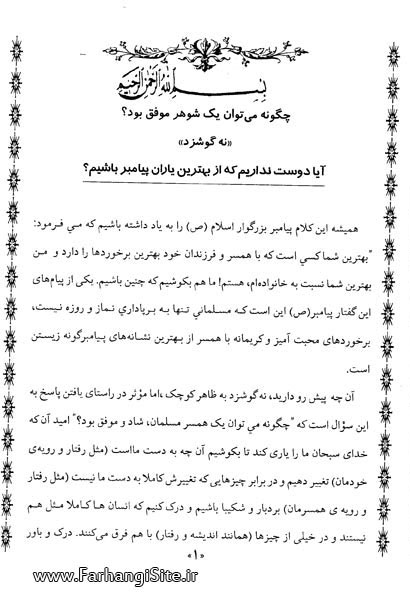 بسم الله الرحمن الرحیم
چگونه می‌توان یک شوهر موفق بود؟
«نه گوشزد»
آیا دوست نداریم که از بهترین یاران پیامبر باشیم؟
همیشه این کلام پیامبر بزرگوار اسلام (ص) را به یاد داشته باشیم که می فرمود:
"بهترین شما کسی است که با همسر و فرزندان خود بهترین برخوردها را دارد و من
بهترین شما نسبت به خانواده‌ام، هستم! ما هم بکوشیم که چنین باشیم. یکی از پیام‌های
این گفتار پیامبر(ص) این است که مسلمانی تنها به برپاداری نماز و روزه نیست،
برخوردهای محبت آمیز و کریمانه با همسر از بهترین نشانه‌های پیامبرگونه زیستن
است.
آن چه پیش رو دارید، نه گوشزد به ظاهر کوچک ،اما مؤثر در راستای یافتن پاسخ به
این سؤال است که "چگونه می توان یک همسر مسلمان، شاد و موفق بود؟" امید آن که
خدای سبحان ما را یاری کند تا بکوشیم آن چه به دست مااست (مثل رفتار و رویه‌ی
خودمان) تغییر دهیم و در برابر چیزهایی که تغییرش کاملا به دست ما نیست (مثل رفتار
و رویه ی همسرمان) بردبار و شکیبا باشیم و درک کنیم که انسان ها کاملا مثل هم
نیستند و در خیلی از چیزها (همانند اندیشه و رفتار) با هم فرق می‌کنند. درک و باور
«۱»
www.FarhangiSite.ir